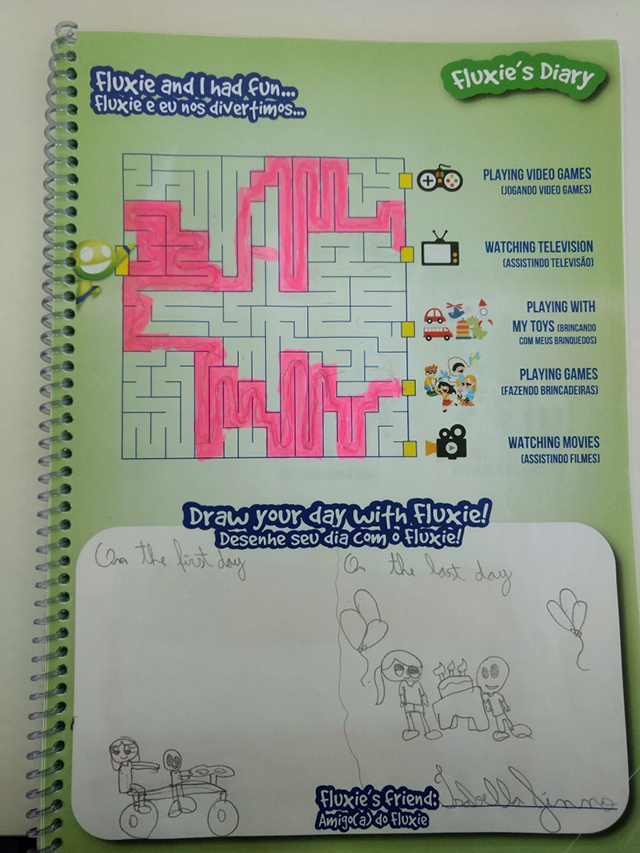 Fluxie and I had fun...
Fluxie e eu nos divertimos...
Fluxie's Diary
PLAYING VIDEO GAMES
(JOGANDO VIDEO GAMES)
WATCHING TELEVISION
(ASSISTINDO TELEVISÃO)
PLAYING WITH
MY TOYS (BRINCANDO
COM MEUS BRINQUEDOS)
PLAYING GAMES
(FAZENDO BRINCADEIRAS)
WATCHING MOVIES
(ASSISTINDO FILMES)
Draw your day with Fluxie!
Desenhe seu dia com o Fluxie!
On the first day
On the last day
Fluxie's friend: Isabella
Amigo(a) do Fluxie